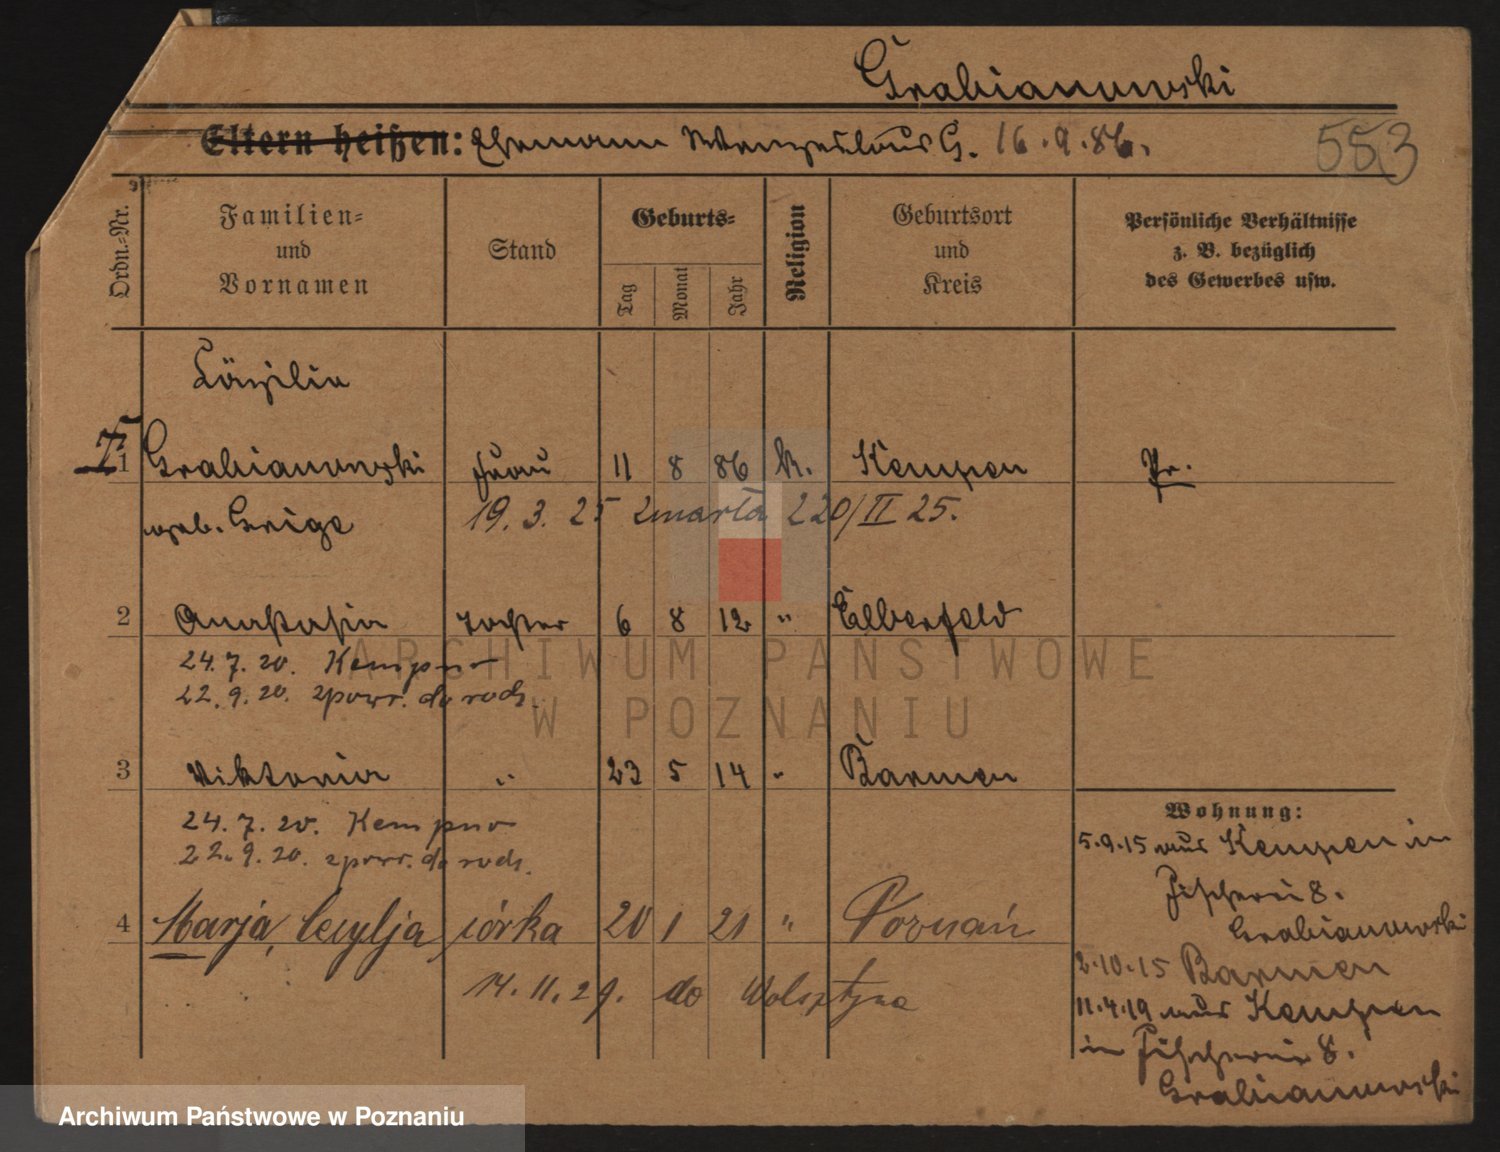 Grabianowski
Eltern heißen: Ehemann Wenzeslaus G. 16.9.86.
553
Ordn.-Nr.
Familien-
und
Vornamen
Stand
Geburts-
Tag
Monat
Jahr
Religion
Geburtsort
und
Kreis
Persönliche Verhältnisse
z. B. bezüglich
des Gewerbes usw.
Cäzilia
1 Grabianowski Frau 11 8 86 k. Kempen Pr.
geb. Geige 19. 3. 25 zmarła 220/II 25.
2 Anastasia Tochter 6 8 12 " Elberfeld
24. 7. 20. Kempno
22. 9. 20. zpowr. do rodz.
3 Viktoria " 23 5 14 " Barmen
24. 7. 20. Kempno
22. 9. 20. zpowr. do rodz.
4 Marja, Cecylja córka 20 1 21 " Poznań
14. 11. 29. do Wolsztyna
Wohnung:
5.9.15 aus Kempen in
Fischerei 8.
Grabianowski
2.10.15 Barmen
11.4.19 aus Kempen
in Fischerei 8.
Grabianowski
ARCHIWUM PAŃSTWOWE
W POZNANIU
Archiwum Państwowe w Poznaniu